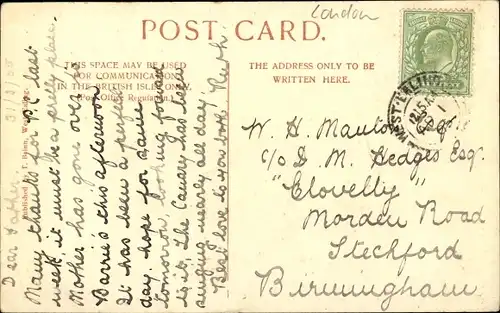 London
POST CARD.
THIS SPACE MAY BE USED
FOR COMMUNICATION
IN THE BRITISH ISLES ONLY.
(Post Office Regulation.)
THE ADDRESS ONLY TO BE
WRITTEN HERE.
31/3/05
Dear Father.
Many thanks for PC last
week, it must be a pretty place.
Mother has gone over to
Barrie's this afternoon
It has been a perfect
day, hope for same
tomorrow, looking forward
to it. The Canary has been
singing nearly all day.
Best love to you both, Ruth
W. H. Manton Esq
c/o D. M. Hedges Esq.
"Clovelly"
Morden Road
Stechford
Birmingham
WEST EALING
12.15 AM
AP 1